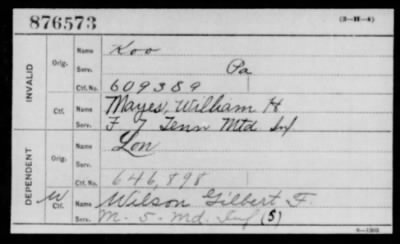 876573 (3-H-4)
INVALID
Orig.
Name Koo
Serv. Pa
Ctf. No. 609389
Ctf.
Name Mayes, William H
Serv. F 7 Tenn Mtd Inf
DEPENDENT
Orig.
Name Lon
Serv.
Ctf. No. 646,898
W
Ctf.
Name Wilson Gilbert F.
Serv. M. 5. Md. Inf (S)